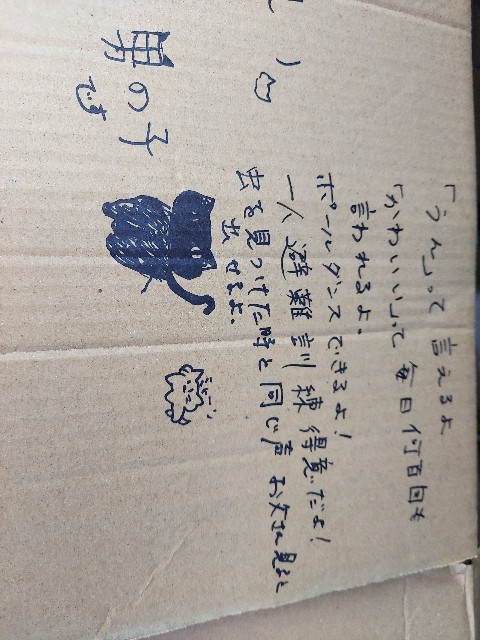 「うん」って 言えるよ
「かわいい」って 毎日何百回も
言われるよ。
ポールダンスできるよ!
一人避難訓練得意だよ!
虫を見つけた時と同じ声 見ると
出せるよ。
男の子
です